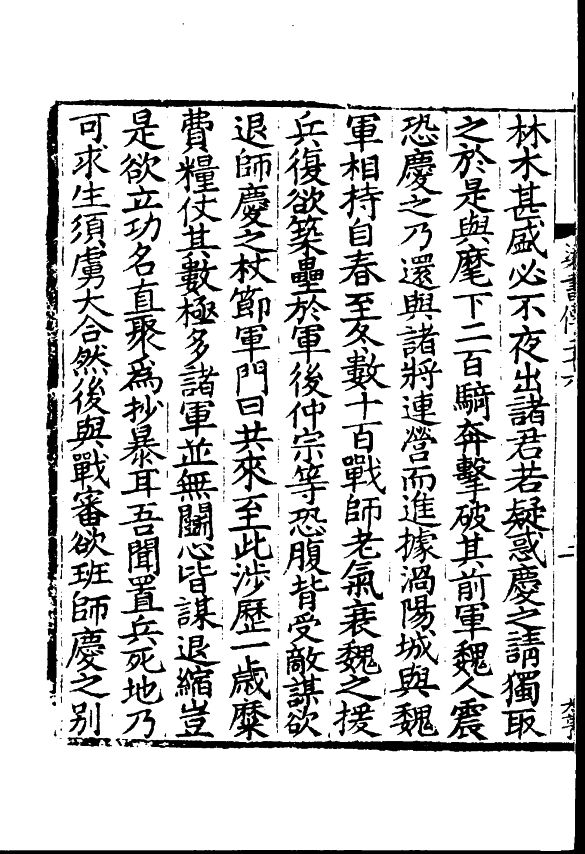 林木甚盛必不夜出諸君若疑惑慶之請獨取
之於是與麾下二百騎奔擊破其前軍魏人震
恐慶之乃還與諸將連營而進據渦陽城與魏
軍相持自春至冬數十百戰師老氣衰魏之援
兵復欲築壘於軍後仲宗等恐腹背受敵謀欲
退師慶之杖節軍門曰共來至此涉歷一歲糜
費糧仗其數極多諸軍並無鬭心皆謀退縮豈
是欲立功名直聚為抄暴耳吾聞置兵死地乃
可求生須虜大合然後與戰審欲班師慶之别